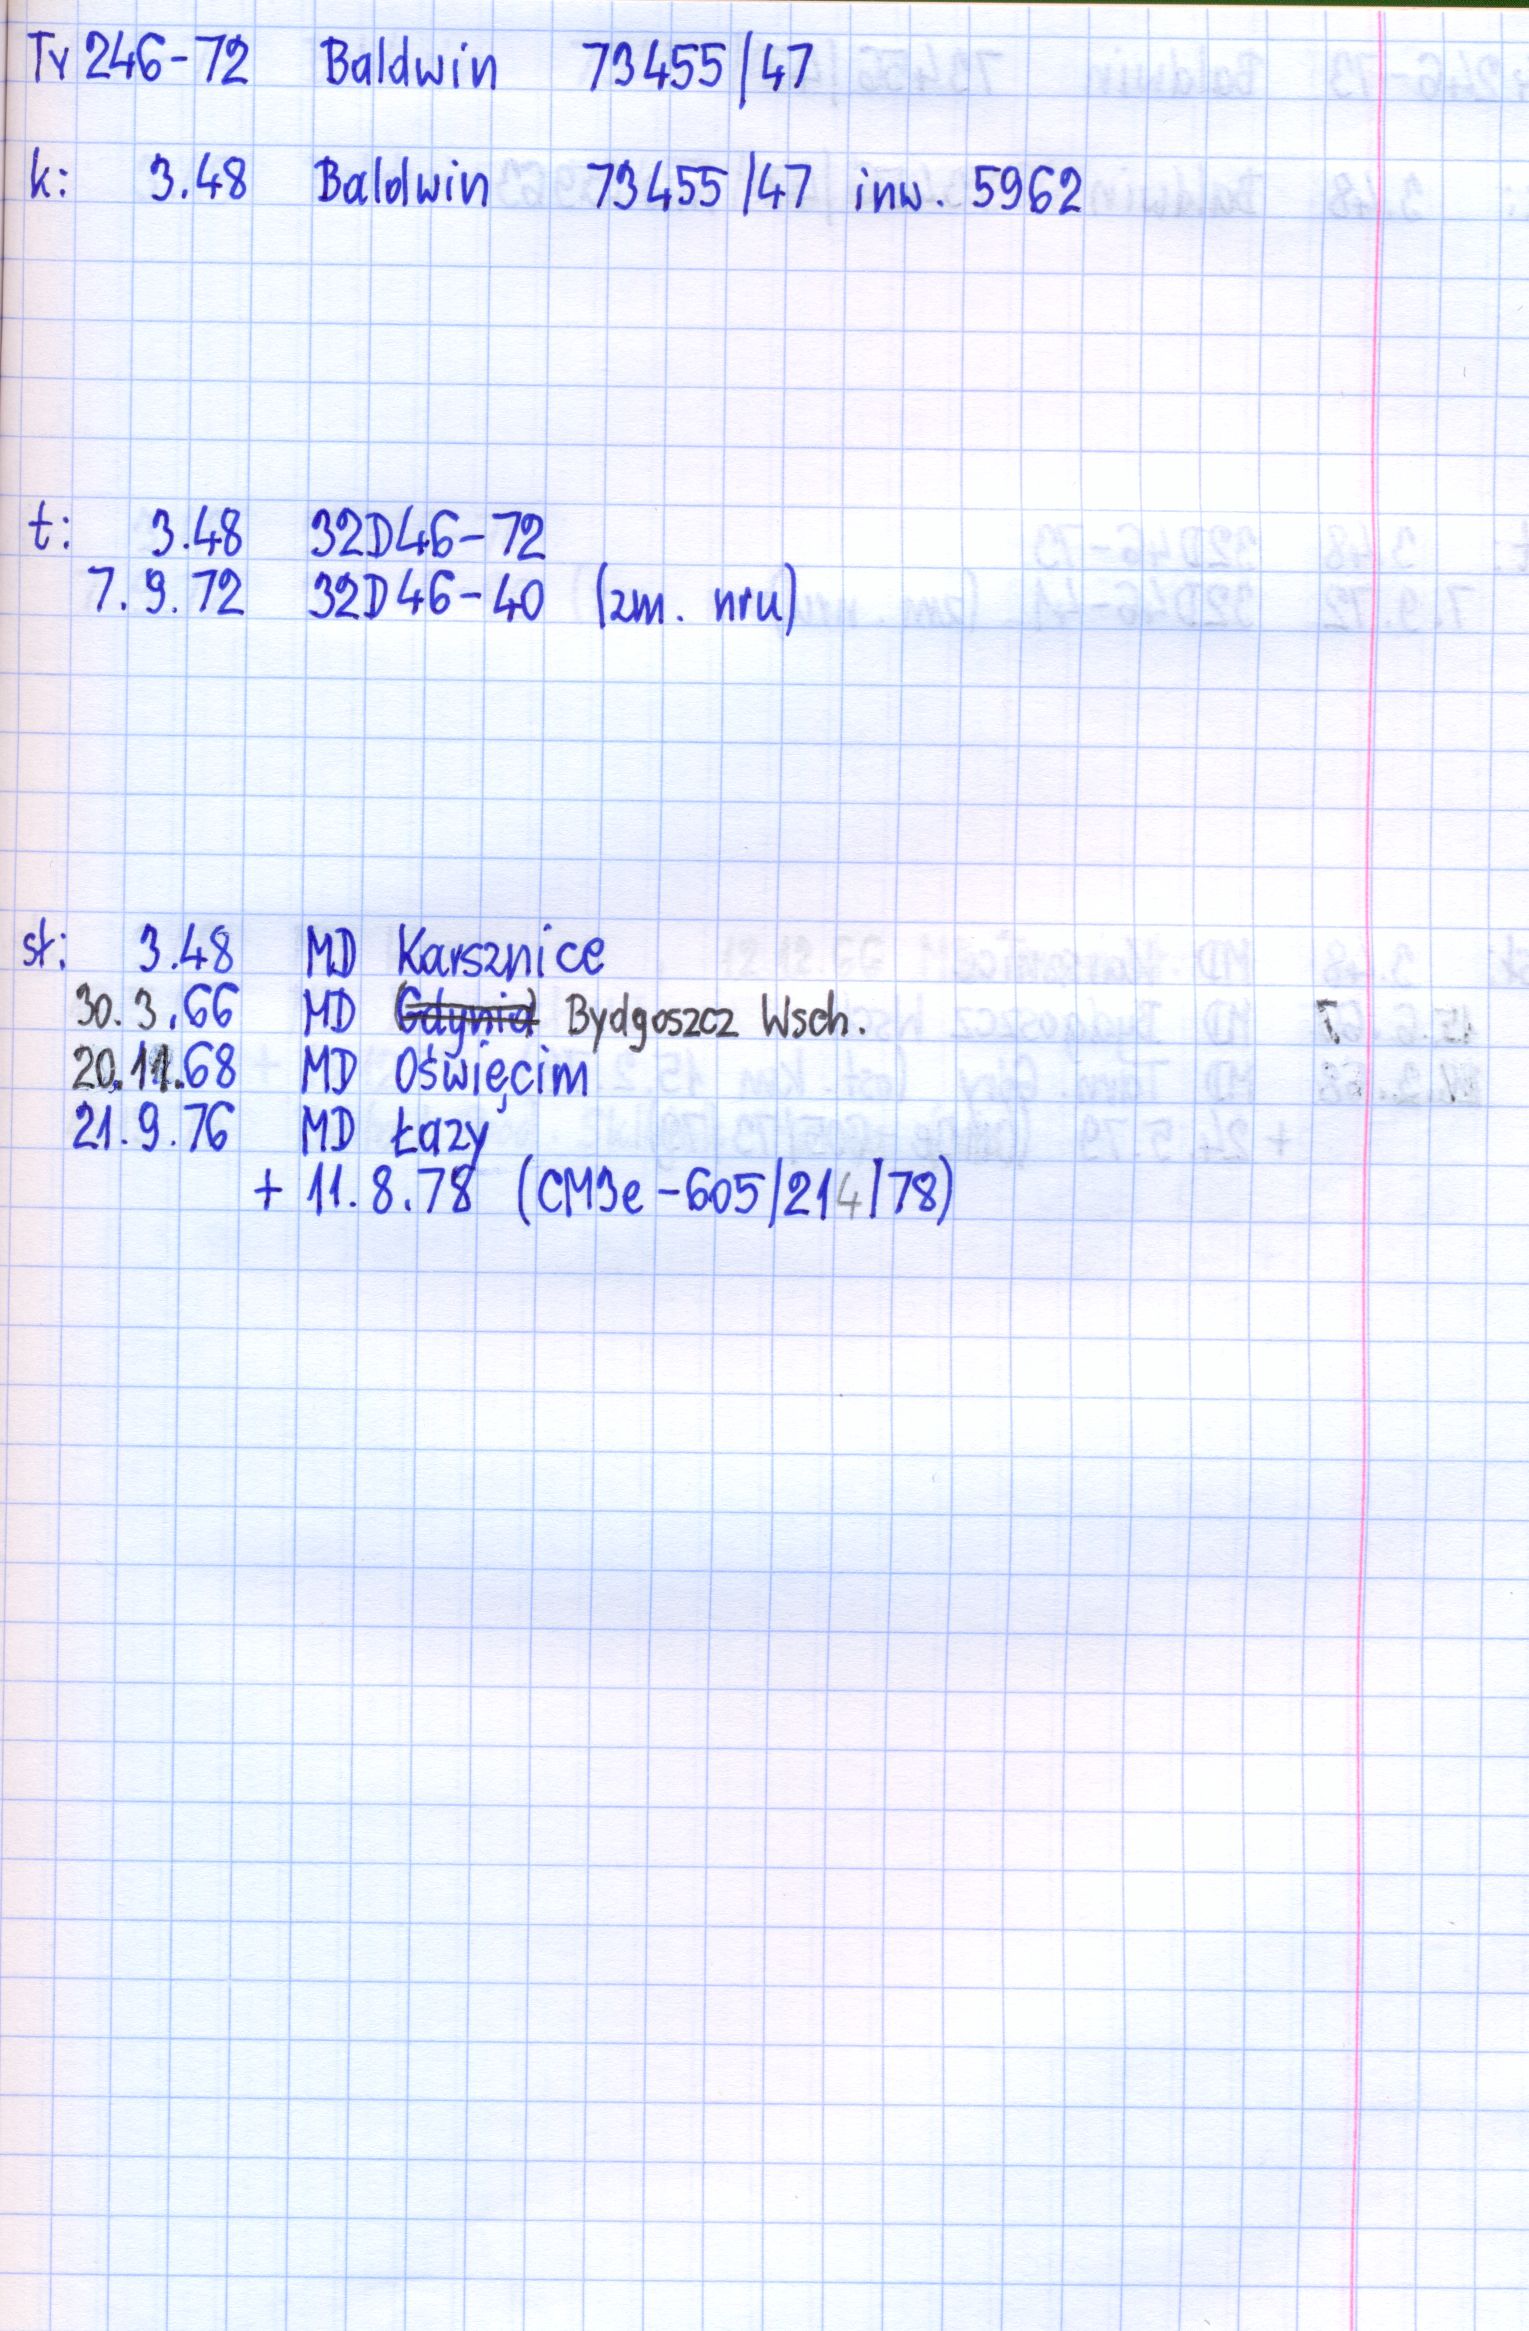 Ty 246-72 Baldwin 73455/47
k: 3.48 Baldwin 73455/47 inw. 5962
t: 3.48 32D46-72
7.9.72 32D46-40 (zm. nru)
st: 3.48 MD Karsznice
30.3.66 MD (Gdynia) Bydgoszcz Wsch.
20.11.68 MD Oświęcim
21.9.76 MD Łazy
+ 11.8.78 (CM3e-605/214/78)